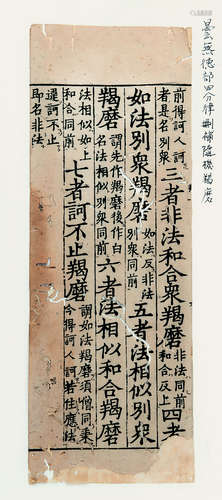 曇無德部四分律刪補隨機羯磨
前得訶人訶者是名別眾三者非法和合眾羯磨非法同前和合反上四者
如法別眾羯磨如法反非法別眾同前五者法相似別眾
羯磨謂先作羯磨後作白名法相似別眾同前六者法相似和合羯磨
法相似如上和合同前七者訶不止羯磨謂如法羯磨須僧同秉今得訶人訶若住應法
違訶不止即名非法